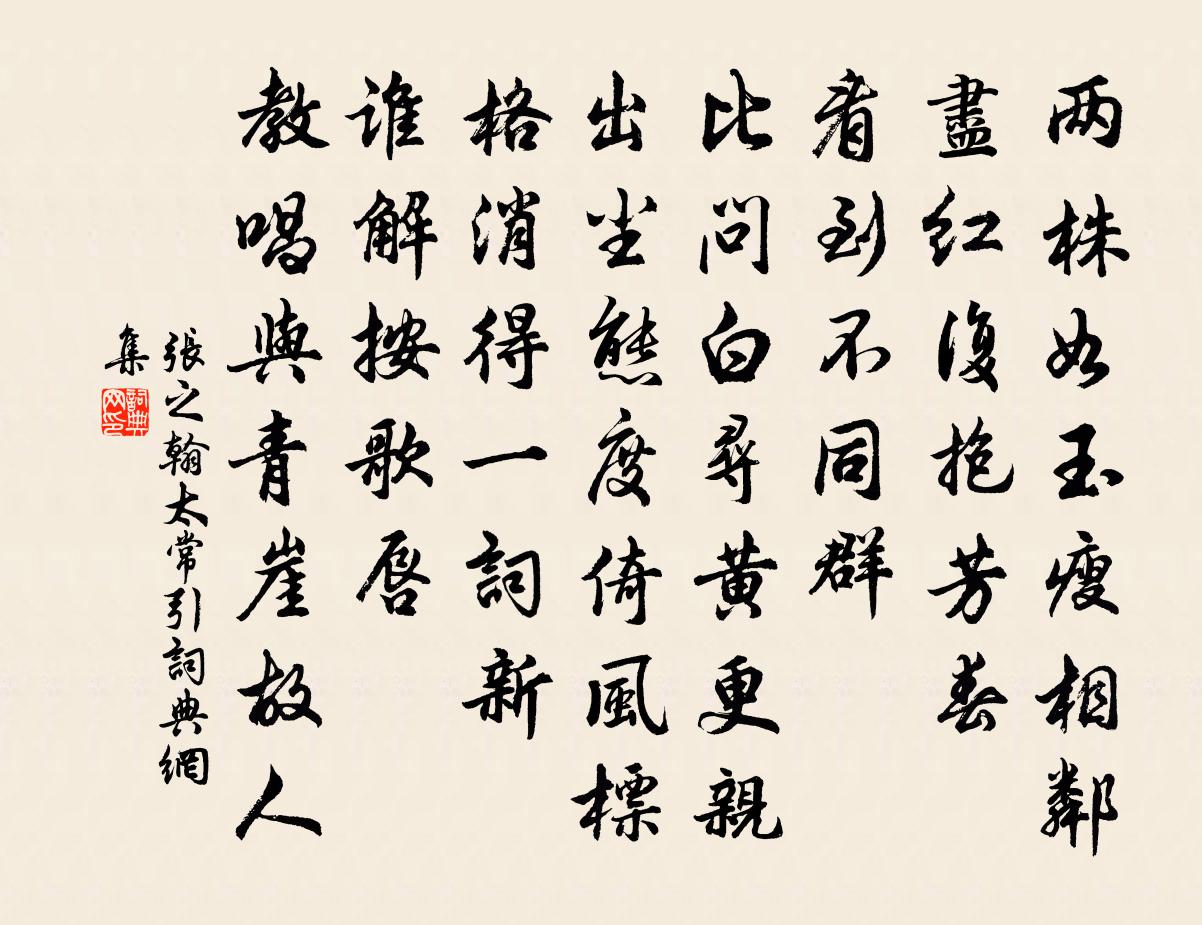 两株如玉瘦相鄰
盡紅復抱芳春
看到不同群
比問白尋黃更親
出尘態度倚風標
格消得一詞新
谁解按歌唇
教唱與青崖故人
張之翰太常引詞典網
集
詞典
网印